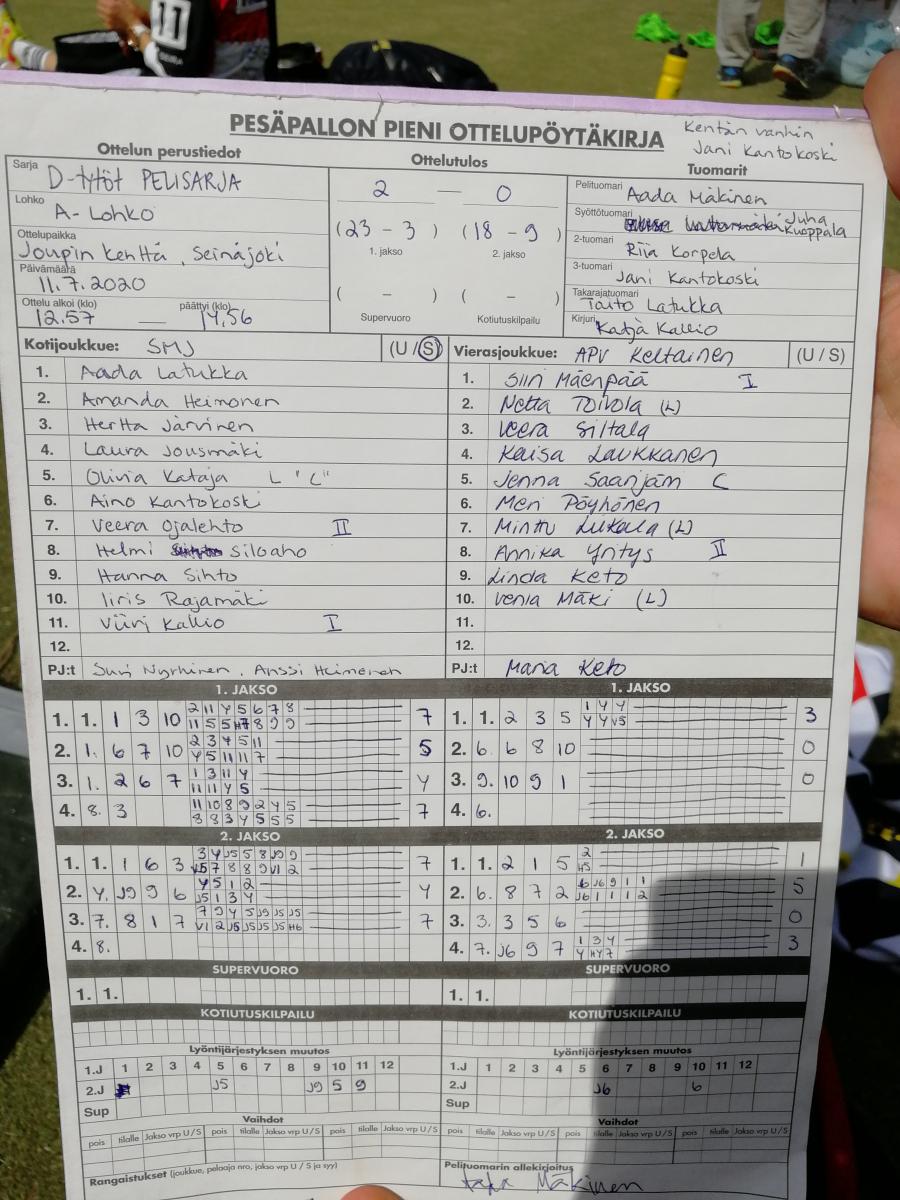 11
PESÄPALLON PIENI OTTELUPÖYTÄKIRJA
Kentän vanhin
Jani Kantokoski
Ottelun perustiedot
Ottelutulos
Tuomarit
Sarja D-tytöt PELISARJA
Lohko A-Lohko
Ottelupaikka Joupin kenttä, Seinäjoki
Päivämäärä 11.7.2020
Ottelu alkoi (klo) päättyi (klo)
12.57 — 14,56
2 — 0
(23 - 3) (18 - 9)
1. jakso 2. jakso
( - ) ( - )
Supervuoro Kotiutuskilpailu
Pelituomari Aada Mäkinen
Syöttötuomari Juha Kuoppala
2-tuomari Riia Korpela
3-tuomari Jani Kantokoski
Takarajatuomari Taito Latukka
Kirjuri Katja Kallio
Kotijoukkue: SMJ (U / S)
1. Aada Latukka
2. Amanda Heimonen
3. Hertta Järvinen
4. Laura Jousmäki
5. Olivia Kataja L "C"
6. Aino Kantokoski
7. Veera Ojalehto II
8. Helmi Siloaho
9. Hanna Sihto
10. Iiris Rajamäki
11. Viivi Kallio I
12.
PJ:t Suvi Nyrhinen, Anssi Heimonen
Vierasjoukkue: APV Keltainen (U / S)
1. Siiri Mäenpää I
2. Netta Toivola (L)
3. Veera Siltala
4. Keisa Laukkanen
5. Jenna Saarijärvi C
6. Meri Pöyhönen
7. Minttu Liikala (L)
8. Annika Yritys II
9. Linda Keto
10. Venla Mäki (L)
11.
12.
PJ:t Maria Keto
1. JAKSO
1. 1. 1 3 10 2 11 4 5 6 7 8 7
11 5 5 H7 8 9 9
2. 1. 6 7 10 2 3 4 5 11 5
4 5 11 11 7
3. 1. 2 6 7 1 3 11 4 4
11 11 4 5
4. 8. 3 11 10 8 9 2 4 5 7
8 8 3 4 5 5 5
1. JAKSO
1. 1. 2 3 5 1 4 4 3
4 4 V5
2. 6. 6 8 10 0
3. 9. 10 9 1 0
4. 6.
2. JAKSO
1. 1. 1 6 3 3 4 J5 5 8 J9 9 7
V5 7 8 8 9 V1 2
2. 4. J9 9 6 4 5 1 2 4
J5 1 3 4
3. 7. 8 1 7 7 9 4 5 J9 J5 J5 7
V1 2 J5 J5 J5 J5 H6
4. 8.
2. JAKSO
1. 1. 2 1 5 2 1
H5
2. 6. 8 7 2 6 J6 9 1 1 5
J6 1 1 1 2
3. 3. 3 5 6 0
4. 7. J6 9 7 1 3 4 3
4 H4 7
SUPERVUORO
1. 1.
SUPERVUORO
1. 1.
KOTIUTUSKILPAILU
KOTIUTUSKILPAILU
Lyöntijärjestyksen muutos
1.J 1 2 3 4 5 6 7 8 9 10 11 12
2.J J5 J9 5 9
Sup
Lyöntijärjestyksen muutos
1.J 1 2 3 4 5 6 7 8 9 10 11 12
2.J J6 6
Sup
Vaihdot
pois tilalle Jakso vrp U / S pois tilalle Jakso vrp U / S pois tilalle Jakso vrp U / S
Vaihdot
pois tilalle Jakso vrp U / S pois tilalle Jakso vrp U / S pois tilalle Jakso vrp U / S
Rangaistukset (joukkue, pelaaja nro, jakso vrp U / S ja syy)
Pelituomarin allekirjoitus
Mäkinen